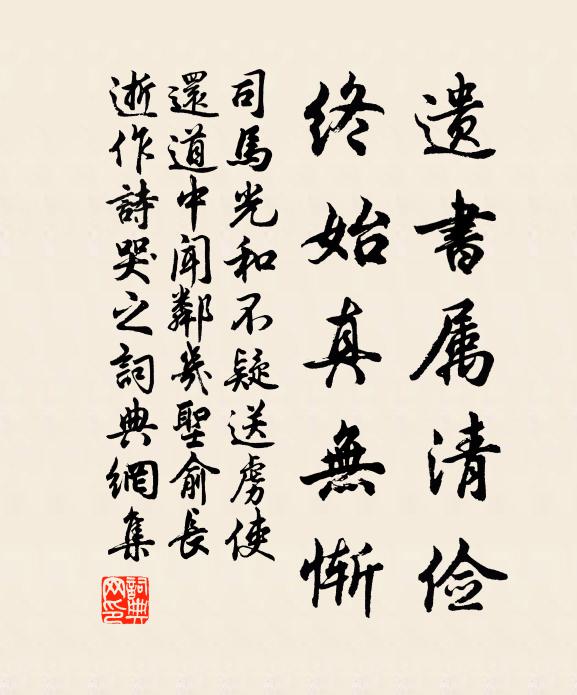 遗書属清俭
终始真無惭
司馬光和不疑送虏使
還道中闻鄰幾聖俞長
逝作詩哭之詞典網集
詞典网印